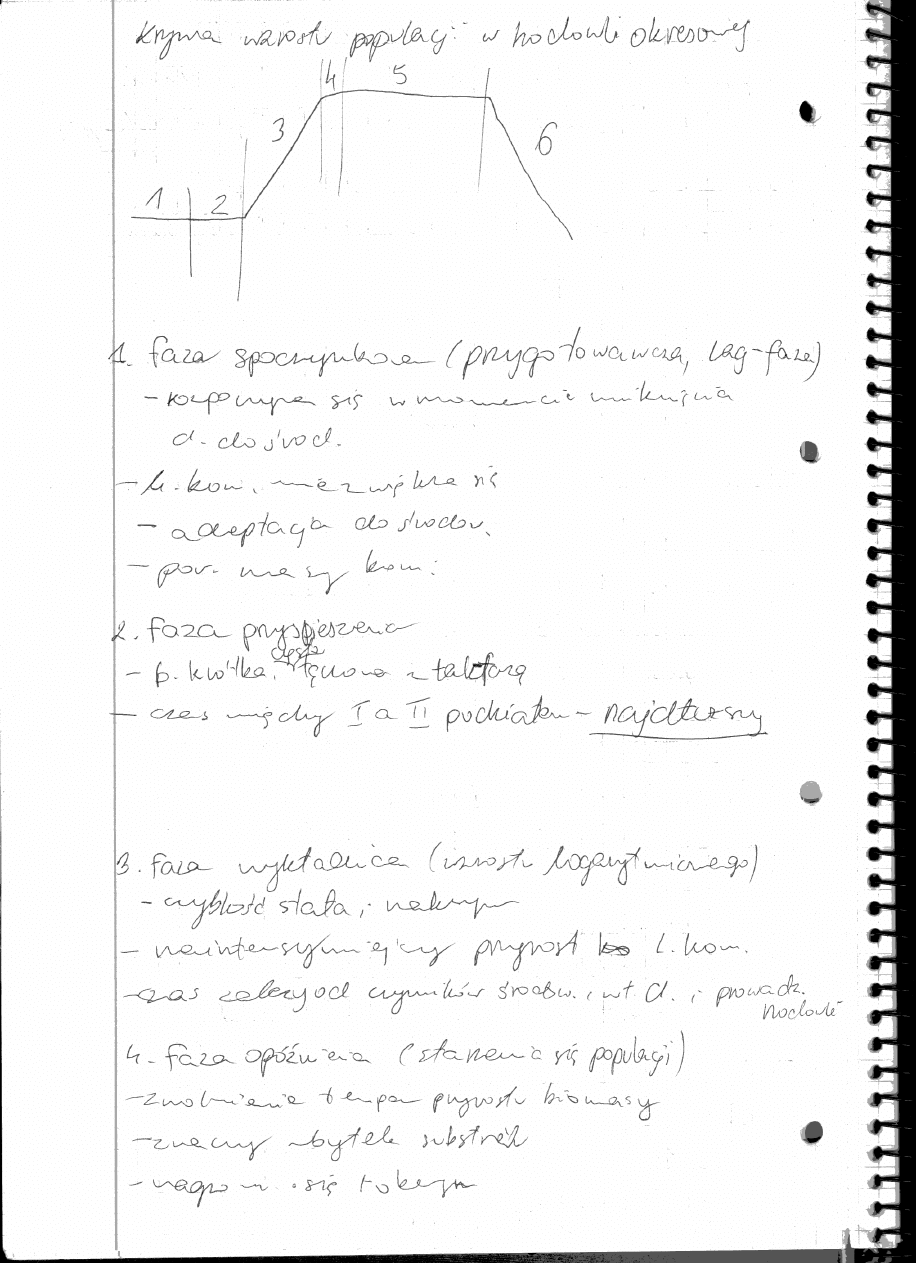 Krzywa wzrostu populacji w hodowli okresowej
1 2 3 4 5 6
1. faza spoczynkowa (przygotowawcza, lag-faza)
- rozpoczyna się w momencie wniknięcia
d. do środ.
- l. kom. nie zwiększa się
- adaptacja do środow.
- pow. masy kom.
2. faza przyspieszenia
- b. krótka, często łączona z tą fazą
- czas między I a II podziałem - najdłuższy
3. faza wykładnicza (wzrostu logarytmicznego)
- szybkość stała i maksym
- najintensywniejszy przyrost l. kom.
- czas zależy od czynników środow., wł. d. i prowadz.
hodowli
4. faza opóźnienia (starzenia się populacji)
- zwolnienie tempa przyrostu biomasy
- znaczny ubytek substratu
- nagrom. się toksyn